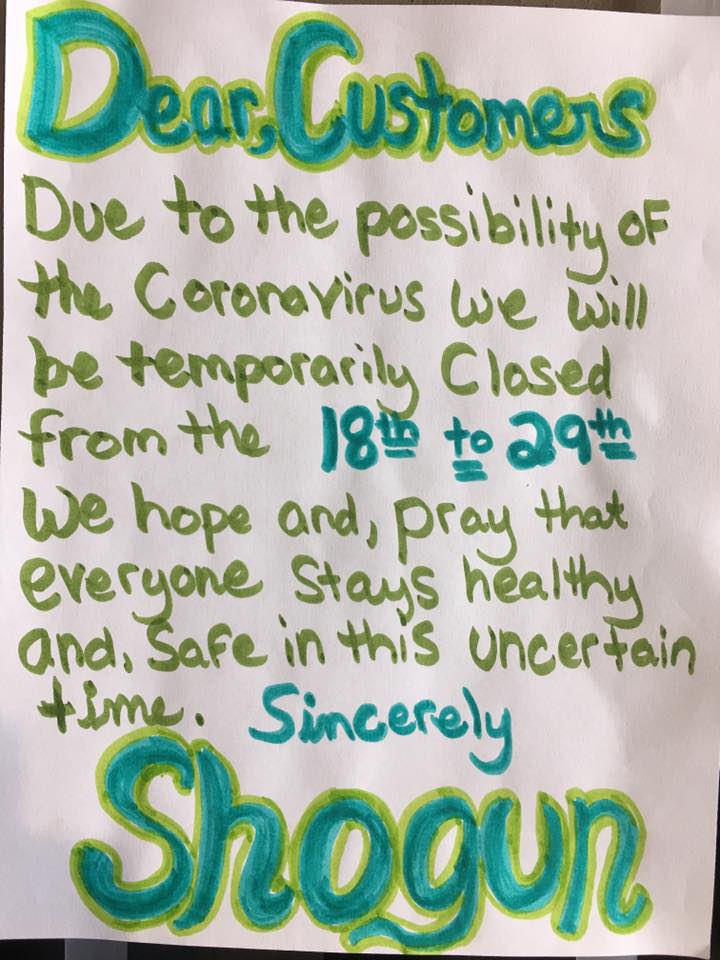 Dear, Customers
Due to the possibility of
the Coronavirus we will
be temporarily Closed
from the 18th to 29th
We hope and, pray that
everyone stays healthy
and, safe in this uncertain
time. Sincerely
Shogun